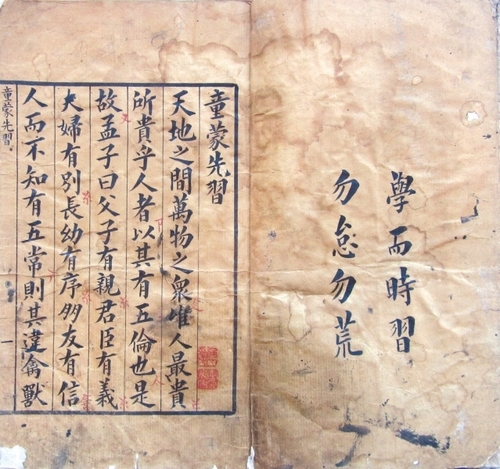 學而時習
勿怠勿荒
童蒙先習
天地之間萬物之眾惟人最貴
所貴乎人者以其有五倫也是
故孟子曰父子有親君臣有義
夫婦有別長幼有序朋友有信
人而不知有五常則其違禽獸
童蒙先習
一